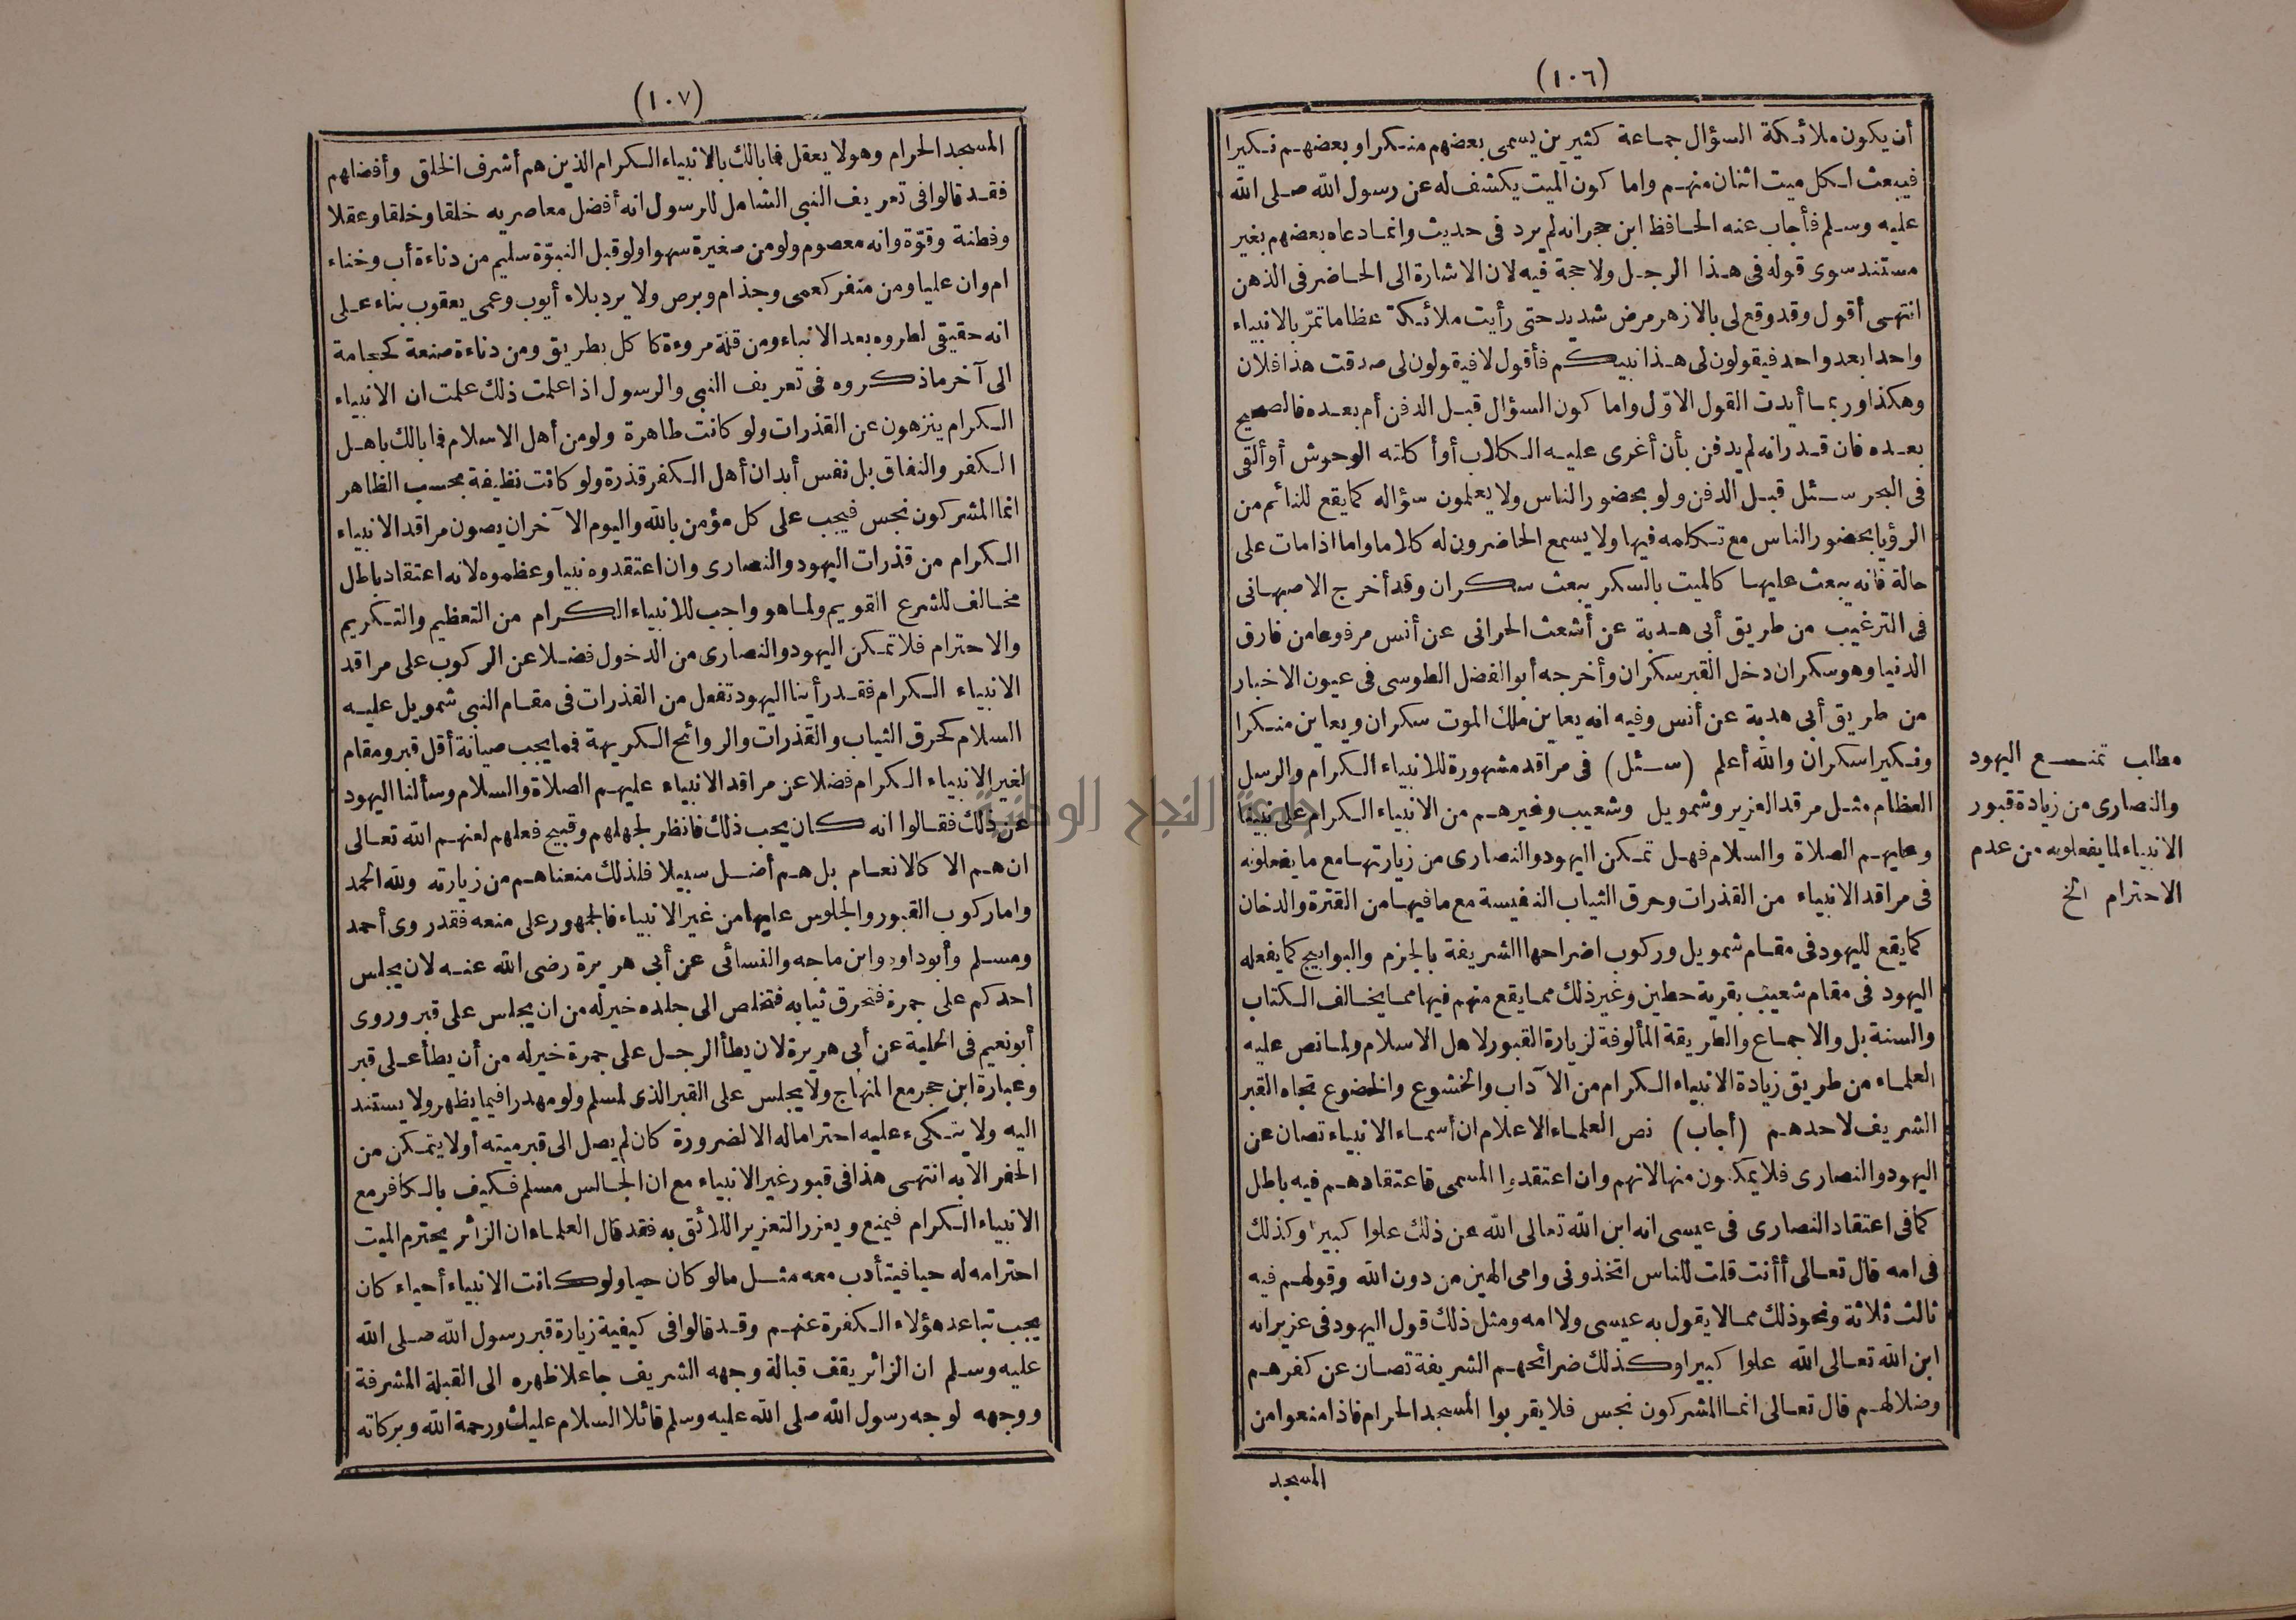 (١٠٦)
أن يكون ملائكة السؤال جماعة كثيرين يسمى بعضهم منكرا وبعضهم نكيرا
فيبعث لكل ميت اثنان منهم واما كون الميت يكشف له عن رسول الله صلى الله
عليه وسلم فأجاب عنه الحافظ ابن حجر انه لم يرد فى حديث وانما دعاه بعضهم بغير
مستند سوى قوله فى هذا الرجل ولا حجة فيه لان الاشارة الى الحاضر فى الذهن
انتهى أقول وقد وقع لى بالازهر مرض شديد حتى رأيت ملائكة عظاما تمر بالانبياء
واحدا بعد واحد فيقولون لى هذا نبيكم فأقول لا فيقولون لى صدقت هذا فلان
وهكذا وربما أيدت القول الاوّل واما كون السؤال قبل الدفن أم بعده فالصحيح
بعده فان قدر انه لم يدفن بأن أغرى عليه الكلاب أو أكلته الوحوش أو ألقى
فى البحر سئل قبل الدفن ولو بحضور الناس ولا يعلمون سؤاله كما يقع للنائم من
الرؤيا بحضور الناس مع تكلمه فيها ولا يسمع الحاضرون له كلاما واما اذا مات على
حالة فانه يبعث عليها كالميت بالسكر يبعث سكران وقد أخرج الاصبهانى
فى الترغيب من طريق أبى هدبة عن أشعث الحرانى عن أنس مرفوعا من فارق
الدنيا وهو سكران دخل القبر سكران وأخرجه أبو الفضل الطوسى فى عيون الاخبار
من طريق أبى هدبة عن أنس وفيه انه يعاين ملك الموت سكران ويعاين منكرا
ونكيرا سكران والله أعلم (سئل) فى مراقد مشهورة للانبياء الكرام والرسل
العظام مثل مرقد العزير وشمويل وشعيب وغيرهم من الانبياء الكرام على نبينا
وعليهم الصلاة والسلام فهل تمكن اليهود والنصارى من زيارتها مع ما يفعلونه
فى مراقد الانبياء من القذرات وحرق الثياب النفيسة مع ما فيها من القترة والدخان
كما يقع لليهود فى مقام شمويل وركوب اضراحها الشريفة بالجزم والبوابيج كما يفعله
اليهود فى مقام شعيب بقرية حطين وغير ذلك مما يقع منهم فيها مما يخالف الكتاب
والسنة بل والاجماع والطريقة المألوفة لزيارة القبور لاهل الاسلام ولما نص عليه
العلماء من طريق زيادة الانبياء الكرام من الآداب والخشوع والخضوع تجاه القبر
الشريف لاحدهم (أجاب) نص العلماء الاعلام ان أسماء الانبياء تصان عن
اليهود والنصارى فلا يمكنون منها لانهم وان اعتقدوا المسمى فاعتقادهم فيه باطل
كما فى اعتقاد النصارى فى عيسى انه ابن الله تعالى الله عن ذلك علوا كبيرا وكذلك
فى امه قال تعالى أأنت قلت للناس اتخذونى وامى الهين من دون الله وقولهم فيه
ثالث ثلاثة ونحو ذلك مما لا يقول به عيسى ولا امه ومثل ذلك قول اليهود فى عزير انه
ابن الله تعالى الله علوا كبيرا وكذلك ضرائحهم الشريفة تصان عن كفرهم
وضلالهم قال تعالى انما المشركون نجس فلا يقربوا المسجد الحرام فاذا منعوا من
المسجد
مطلب تمنع اليهود
والنصارى من زيادة قبور
الانبياء لما يفعلونه من عدم
الاحترام الخ
(١٠٧)
المسجد الحرام وهو لا يعقل فما بالك بالانبياء الكرام الذين هم أشرف الخلق وأفضلهم
فقد قالوا فى تعريف النبى الشامل للرسول انه أفضل معاصريه خلقا وخلقا وعقلا
وفطنة وقوّة وانه معصوم ولو من صغيرة سهوا ولو قبل النبوّة سليم من دناءة أب وخناء
ام وان عليا ومن منفر كعمى وجذام وبرص ولا يرد بلاء أيوب وعمى يعقوب بناء على
انه حقيقى لطروه بعد الانباء ومن قلة مروءة كاكل بطريق ومن دناءة صنعة كحجامة
الى آخر ما ذكروه فى تعريف النبى والرسول اذا علمت ذلك علمت ان الانبياء
الكرام ينزهون عن القذرات ولو كانت طاهرة ولو من أهل الاسلام فما بالك باهل
الكفر والنفاق بل نفس أبدان أهل الكفر قذرة ولو كانت نظيفة بحسب الظاهر
انما المشركون نجس فيجب على كل مؤمن بالله واليوم الآخر ان يصون مراقد الانبياء
الكرام من قذرات اليهود والنصارى وان اعتقدوه نبيا وعظموه لانه اعتقاد باطل
مخالف للشرع القويم ولما هو واجب للانبياء الكرام من التعظيم والتكريم
والاحترام فلا تمكن اليهود والنصارى من الدخول فضلا عن الركوب على مراقد
الانبياء الكرام فقد رأينا اليهود تفعل من القذرات فى مقام النبى شمويل عليه
السلام كحرق الثياب والقذرات والروائح الكريهة فما يجب صيانة أقل قبر ومقام
لغير الانبياء الكرام فضلا عن مراقد الانبياء عليهم الصلاة والسلام وسألنا اليهود
عن ذلك فقالوا انه كان يحب ذلك فانظر لجهلهم وقبيح فعلهم لعنهم الله تعالى
ان هم الا كالانعام بل هم أضل سبيلا فلذلك منعناهم من زيارته ولله الحمد
واما ركوب القبور والجلوس عليها من غير الانبياء فالجمهور على منعه فقد روى أحمد
ومسلم وأبو داود وابن ماجه والنسائى عن أبى هريرة رضى الله عنه لان يجلس
احدكم على جمرة فتحرق ثيابه فتخلص الى جلده خير له من ان يجلس على قبر وروى
أبو نعيم فى الحلية عن أبى هريرة لان يطأ الرجل على جمرة خير له من أن يطأ على قبر
وعبارة ابن حجر مع المنهاج ولا يجلس على القبر الذى لمسلم ولو مهدرا فيما يظهر ولا يستند
اليه ولا يتكىء عليه احتراما له الا لضرورة كان لم يصل الى قبر ميته أو لا يتمكن من
الحفر الا به انتهى هذا فى قبور غير الانبياء مع ان الجالس مسلم فكيف بالكافر مع
الانبياء الكرام فيمنع ويعزر التعزير اللائق به فقد قال العلماء ان الزائر يحترم الميت
احترامه له حيا فيتأدب معه مثل ما لو كان حيا ولو كانت الانبياء أحياء كان
يجب تباعد هؤلاء الكفرة عنهم وقد قالوا فى كيفية زيارة قبر رسول الله صلى الله
عليه وسلم ان الزائر يقف قبالة وجهه الشريف جاعلا ظهره الى القبلة المشرفة
ووجهه لوجه رسول الله صلى الله عليه وسلم قائلا السلام عليك ورحمة الله وبركاته
جامعة النجاح الوطنية